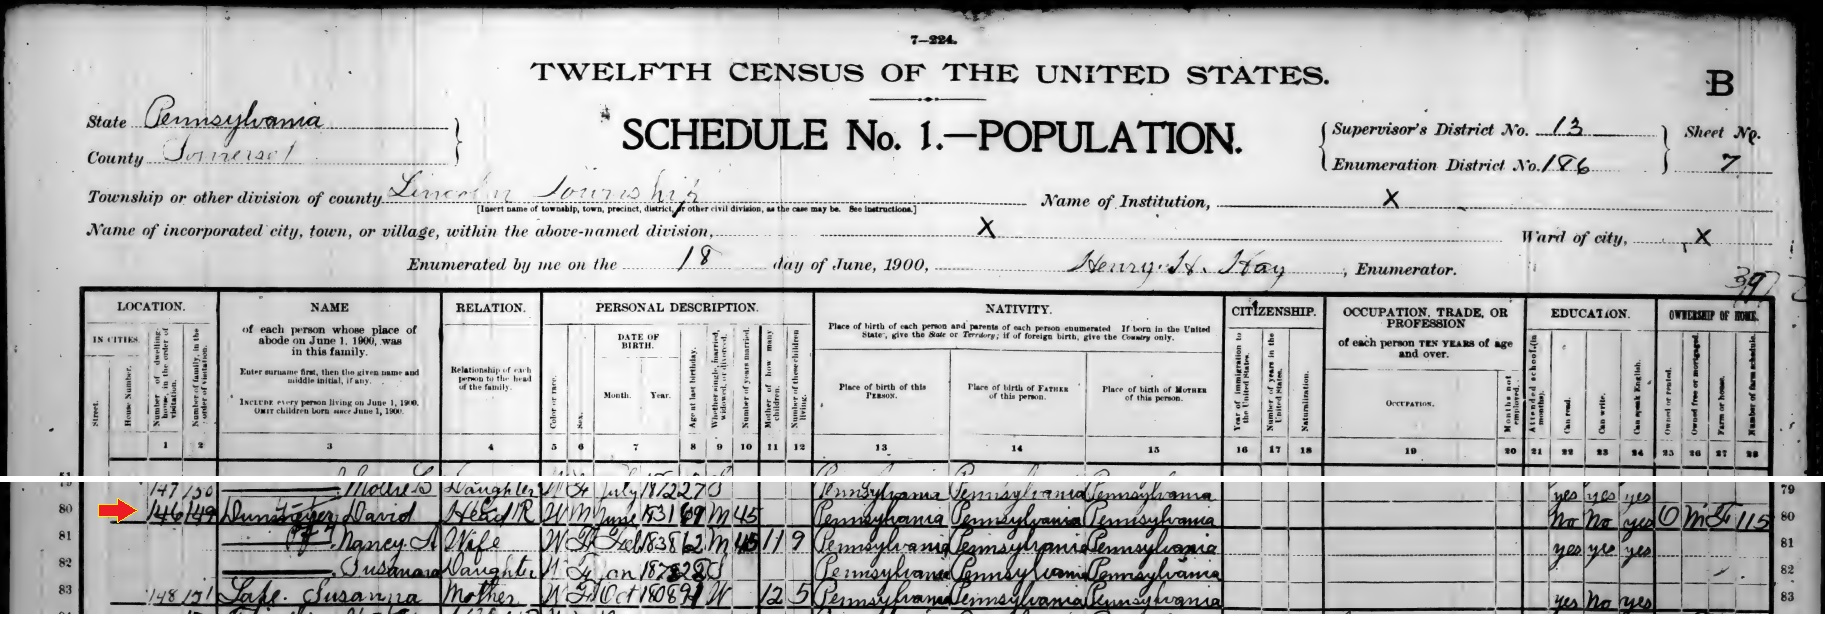 7—224.
TWELFTH CENSUS OF THE UNITED STATES.
B
State Pennsylvania
County Somerset
SCHEDULE No. 1.—POPULATION.
Supervisor's District No. 13
Enumeration District No. 186
Sheet No.
7
Township or other division of county Lincoln Township
[Insert name of township, town, precinct, district, or other civil division, as the case may be. See instructions.]
Name of Institution, X
Name of incorporated city, town, or village, within the above-named division, X
Ward of city, X
Enumerated by me on the 18 day of June, 1900, Henry H. Hay, Enumerator.
LOCATION. NAME RELATION. PERSONAL DESCRIPTION. NATIVITY. CITIZENSHIP. OCCUPATION, TRADE, OR PROFESSION EDUCATION. OWNERSHIP OF HOME.
IN CITIES.
Street.
House Number.
Number of dwelling-house, in the order of visitation.
Number of family, in the order of visitation.
of each person whose place of abode on June 1, 1900, was in this family.
Enter surname first, then the given name and middle initial, if any.
INCLUDE every person living on June 1, 1900.
OMIT children born since June 1, 1900.
Relationship of each person to the head of the family.
Color or race.
Sex.
DATE OF BIRTH.
Month. Year.
Age at last birthday.
Whether single, married, widowed, or divorced.
Number of years married.
Mother of how many children.
Number of these children living.
Place of birth of each person and parents of each person enumerated. If born in the United States, give the State or Territory; if of foreign birth, give the Country only.
Place of birth of this PERSON.
Place of birth of FATHER of this person.
Place of birth of MOTHER of this person.
Year of immigration to the United States.
Number of years in the United States.
Naturalization.
of each person TEN YEARS of age and over.
OCCUPATION.
Months not employed.
Attended school (in months).
Can read.
Can write.
Can speak English.
Owned or rented.
Owned free or mortgaged.
Farm or house.
Number of farm schedule.
1 2 3 4 5 6 7 8 9 10 11 12 13 14 15 16 17 18 19 20 21 22 23 24 25 26 27 28
79 147 150 Mollie S Daughter W F July 1872 27 S Pennsylvania Pennsylvania Pennsylvania yes yes yes 79
80 146 149 Dunmeyer David Head W M June 1831 69 M 45 Pennsylvania Pennsylvania Pennsylvania No No yes O M F 115 80
81 Nancy A Wife W F Feb 1838 62 M 45 11 9 Pennsylvania Pennsylvania Pennsylvania yes yes yes 81
82 Susanara Daughter W F Jan S Pennsylvania Pennsylvania Pennsylvania 82
83 148 151 Lape Susanna Mother W F Oct 1808 91 W 12 5 Pennsylvania Pennsylvania Pennsylvania yes No yes 83